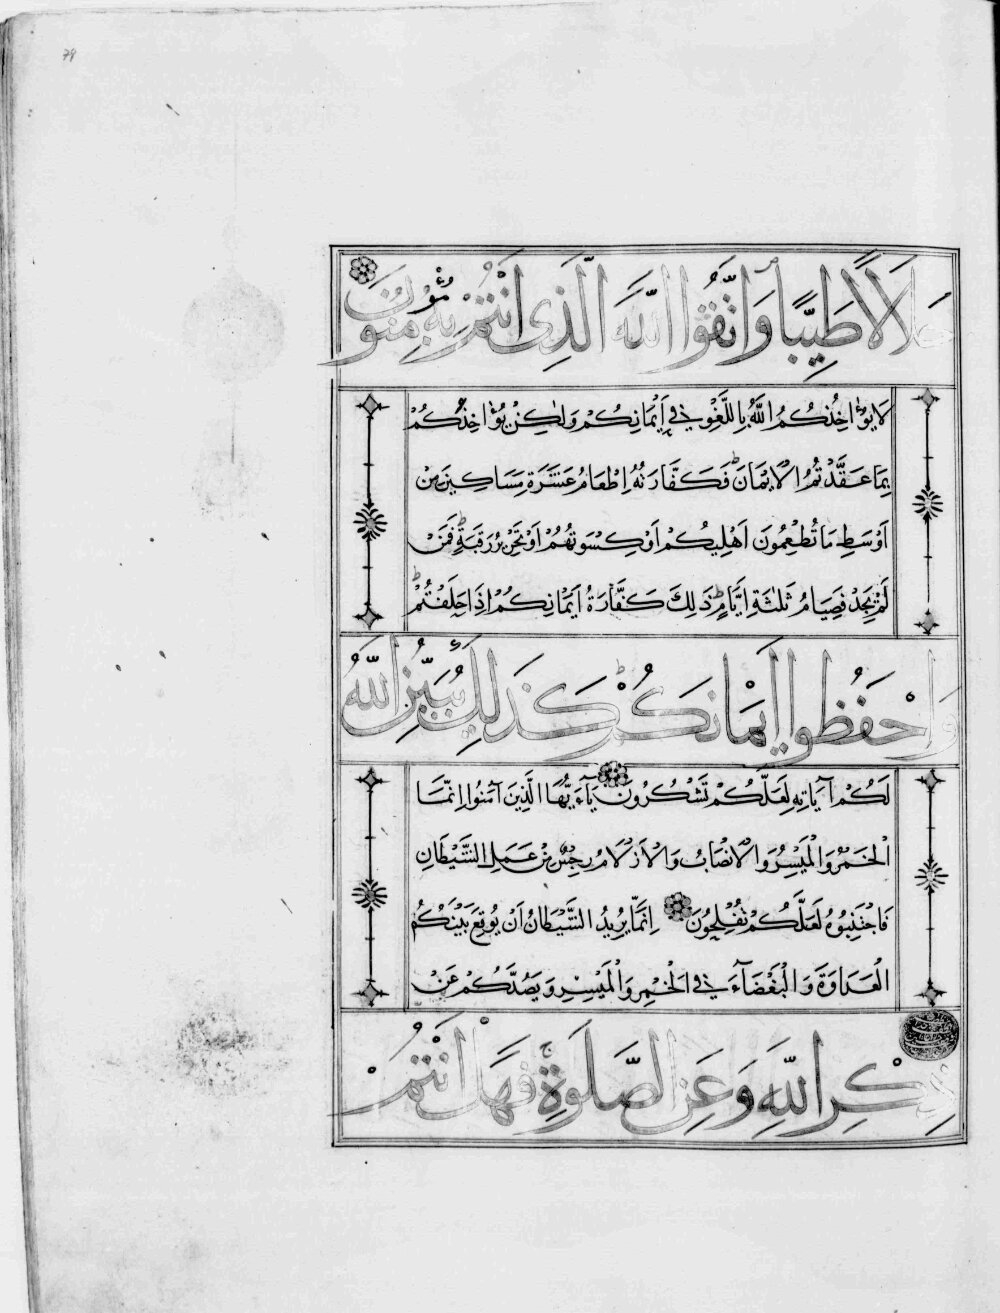 حَلَالًا طَيِّبًا وَاتَّقُوا اللَّهَ الَّذِي أَنْتُمْ بِهِ مُؤْمِنُونَ
لَا يُؤَاخِذُكُمُ اللَّهُ بِاللَّغْوِ فِي أَيْمَانِكُمْ وَلَٰكِنْ يُؤَاخِذُكُمْ
بِمَا عَقَّدْتُمُ الْأَيْمَانَ فَكَفَّارَتُهُ إِطْعَامُ عَشَرَةِ مَسَاكِينَ مِنْ
أَوْسَطِ مَا تُطْعِمُونَ أَهْلِيكُمْ أَوْ كِسْوَتُهُمْ أَوْ تَحْرِيرُ رَقَبَةٍ فَمَنْ
لَمْ يَجِدْ فَصِيَامُ ثَلَٰثَةِ أَيَّامٍ ذَٰلِكَ كَفَّارَةُ أَيْمَانِكُمْ إِذَا حَلَفْتُمْ
وَاحْفَظُوا أَيْمَانَكُمْ كَذَٰلِكَ يُبَيِّنُ اللَّهُ
لَكُمْ آيَاتِهِ لَعَلَّكُمْ تَشْكُرُونَ يَاءَيُّهَا الَّذِينَ آمَنُوا إِنَّمَا
الْخَمْرُ وَالْمَيْسِرُ وَالْأَنْصَابُ وَالْأَزْلَامُ رِجْسٌ مِنْ عَمَلِ الشَّيْطَانِ
فَاجْتَنِبُوهُ لَعَلَّكُمْ تُفْلِحُونَ إِنَّمَا يُرِيدُ الشَّيْطَانُ أَنْ يُوقِعَ بَيْنَكُمُ
الْعَدَاوَةَ وَالْبَغْضَاءَ فِي الْخَمْرِ وَالْمَيْسِرِ وَيَصُدَّكُمْ عَنْ
ذِكْرِ اللَّهِ وَعَنِ الصَّلَوٰةِ فَهَلْ أَنْتُمْ